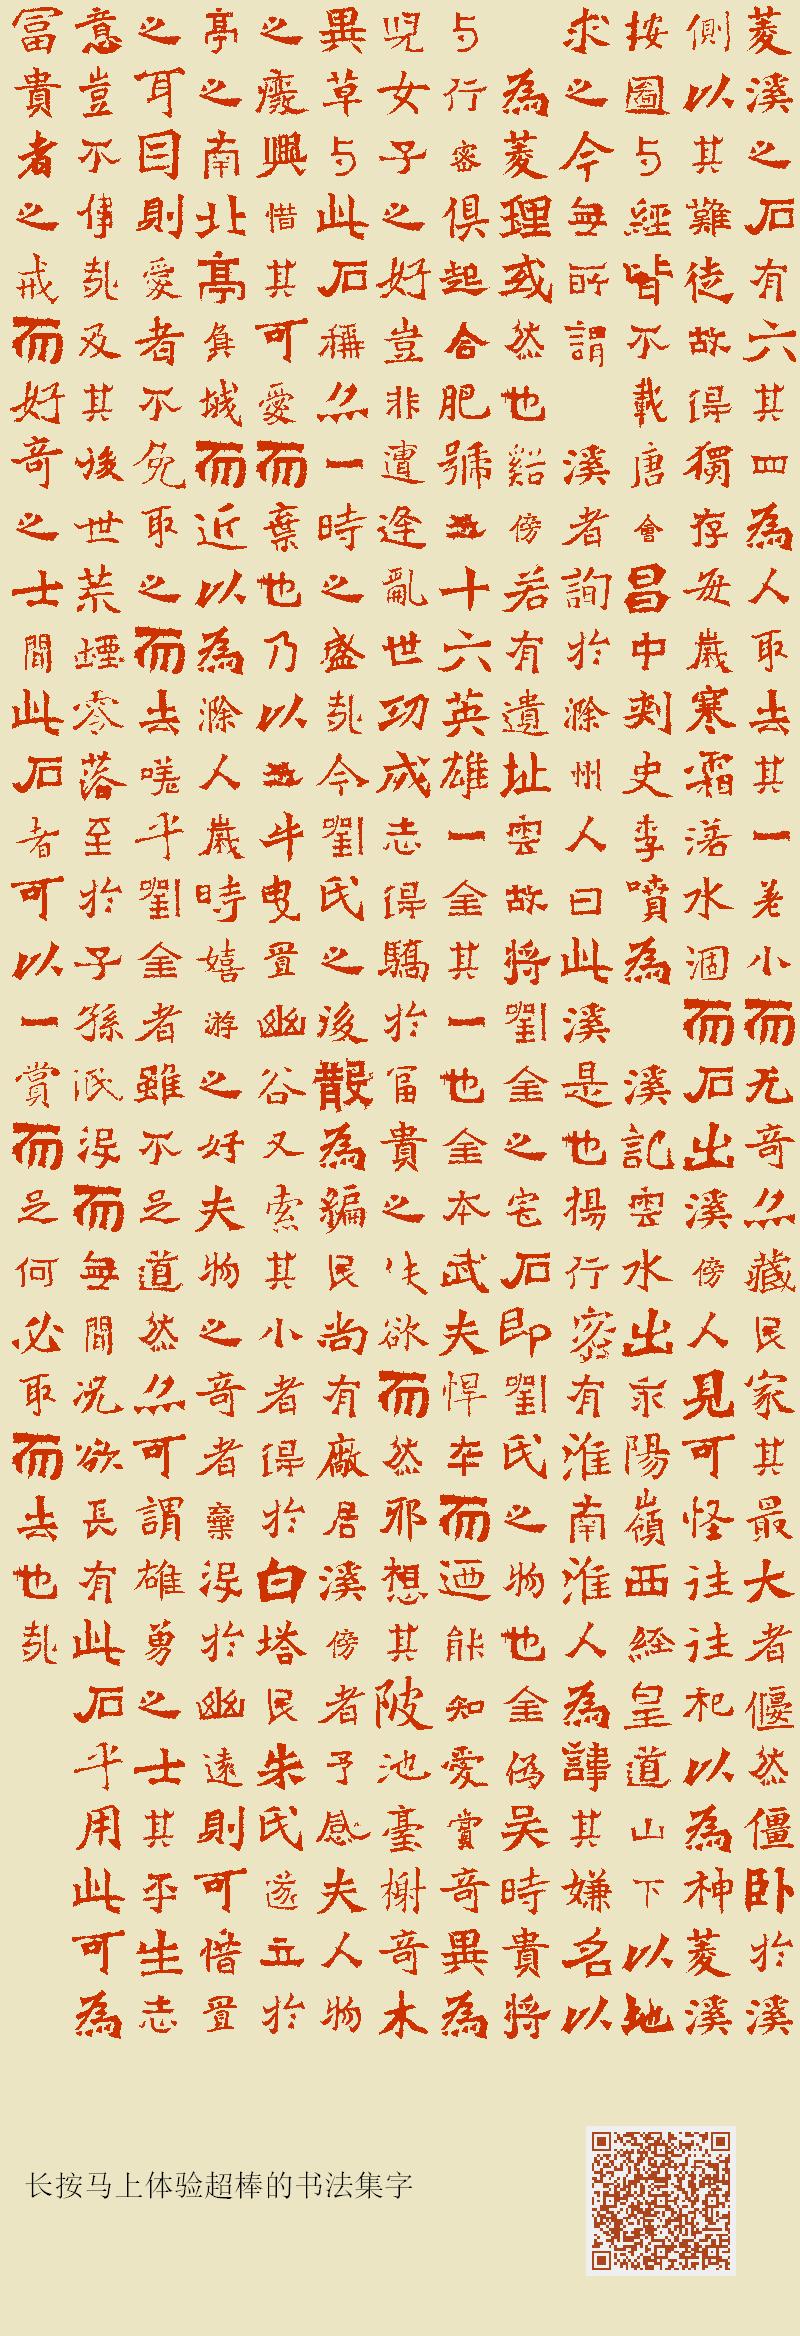 菱溪之石有六其四為人取去其一差小而尤奇亦藏民家其最大者偃然僵卧於溪
側以其難徙故得獨存每歲寒霜落水涸而石出溪傍人見可怪往往祀以為神菱溪
按圖与經皆不載唐會昌中刺史李噴為 溪記雲水出永陽嶺西經皇道山下以地
求之今無所謂 溪者詢於滁州人曰此溪是也揚行密有淮南淮人為諱其嫌名以
為菱理或然也 谿傍若有遺址雲故將劉金之宅石即劉氏之物也金偽吳時貴將
与行密俱起合肥號三十六英雄一金其一也金本武夫悍卒而迺能知愛賞奇異為
兒女子之好豈非遭逢亂世功成志得驕於富貴之佚欲而然邪想其陂池臺榭奇木
異草与此石稱亦一時之盛哉今劉氏之後散為編民尚有廠居溪傍者予感夫人物
之廢興惜其可愛而棄也乃以三牛曳置幽谷又索其小者得於白塔民朱氏遂立於
亭之南北亭負城而近以為滁人歲時嬉游之好夫物之奇者棄沒於幽遠則可惜置
之耳目則愛者不免取之而去嗟乎劉金者雖不足道然亦可謂雄勇之士其平生志
意豈不偉哉及其後世荒堙零落至於子孫泯沒而無聞況欲長有此石乎用此可為
富貴者之戒而好奇之士聞此石者可以一賞而足何必取而去也哉
长按马上体验超棒的书法集字